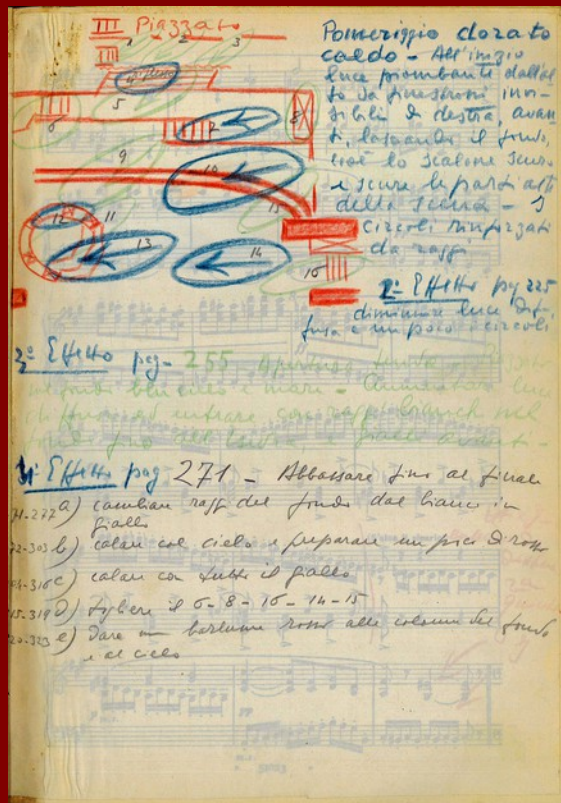 III Piazzato
1 2 3
III
4
5
6
7
8
9
10
11
12
13
14
15
16
Pomeriggio dorato
caldo - All'inizio
luce piombante dall'al
to da finestroni invi-
sibili di destra, avan
ti, lasciando il fondo,
cioè lo scalone scuro
e scure le parti alte
della scena - I
circoli rinforzati
da raggi
1º Effetto pg 225
diminuire luce dif-
fusa e un poco i circoli
2º Effetto pag- 255
blu cielo e mare - Aumentare luce
entrare con raggi bianchi nel
fondo fino e gialli avanti -
3º Effetto pag 271 - Abbassare fino al finale
a) cambiare raggi del fondo dal bianco in
giallo
303 b) calare col cielo e preparare un poco di rosso
316 c) calare con tutto il giallo
319 d) togliere il 6-8-16-14-15
323 e) Dare un barlume rosso alle colonne del fondo
e al cielo